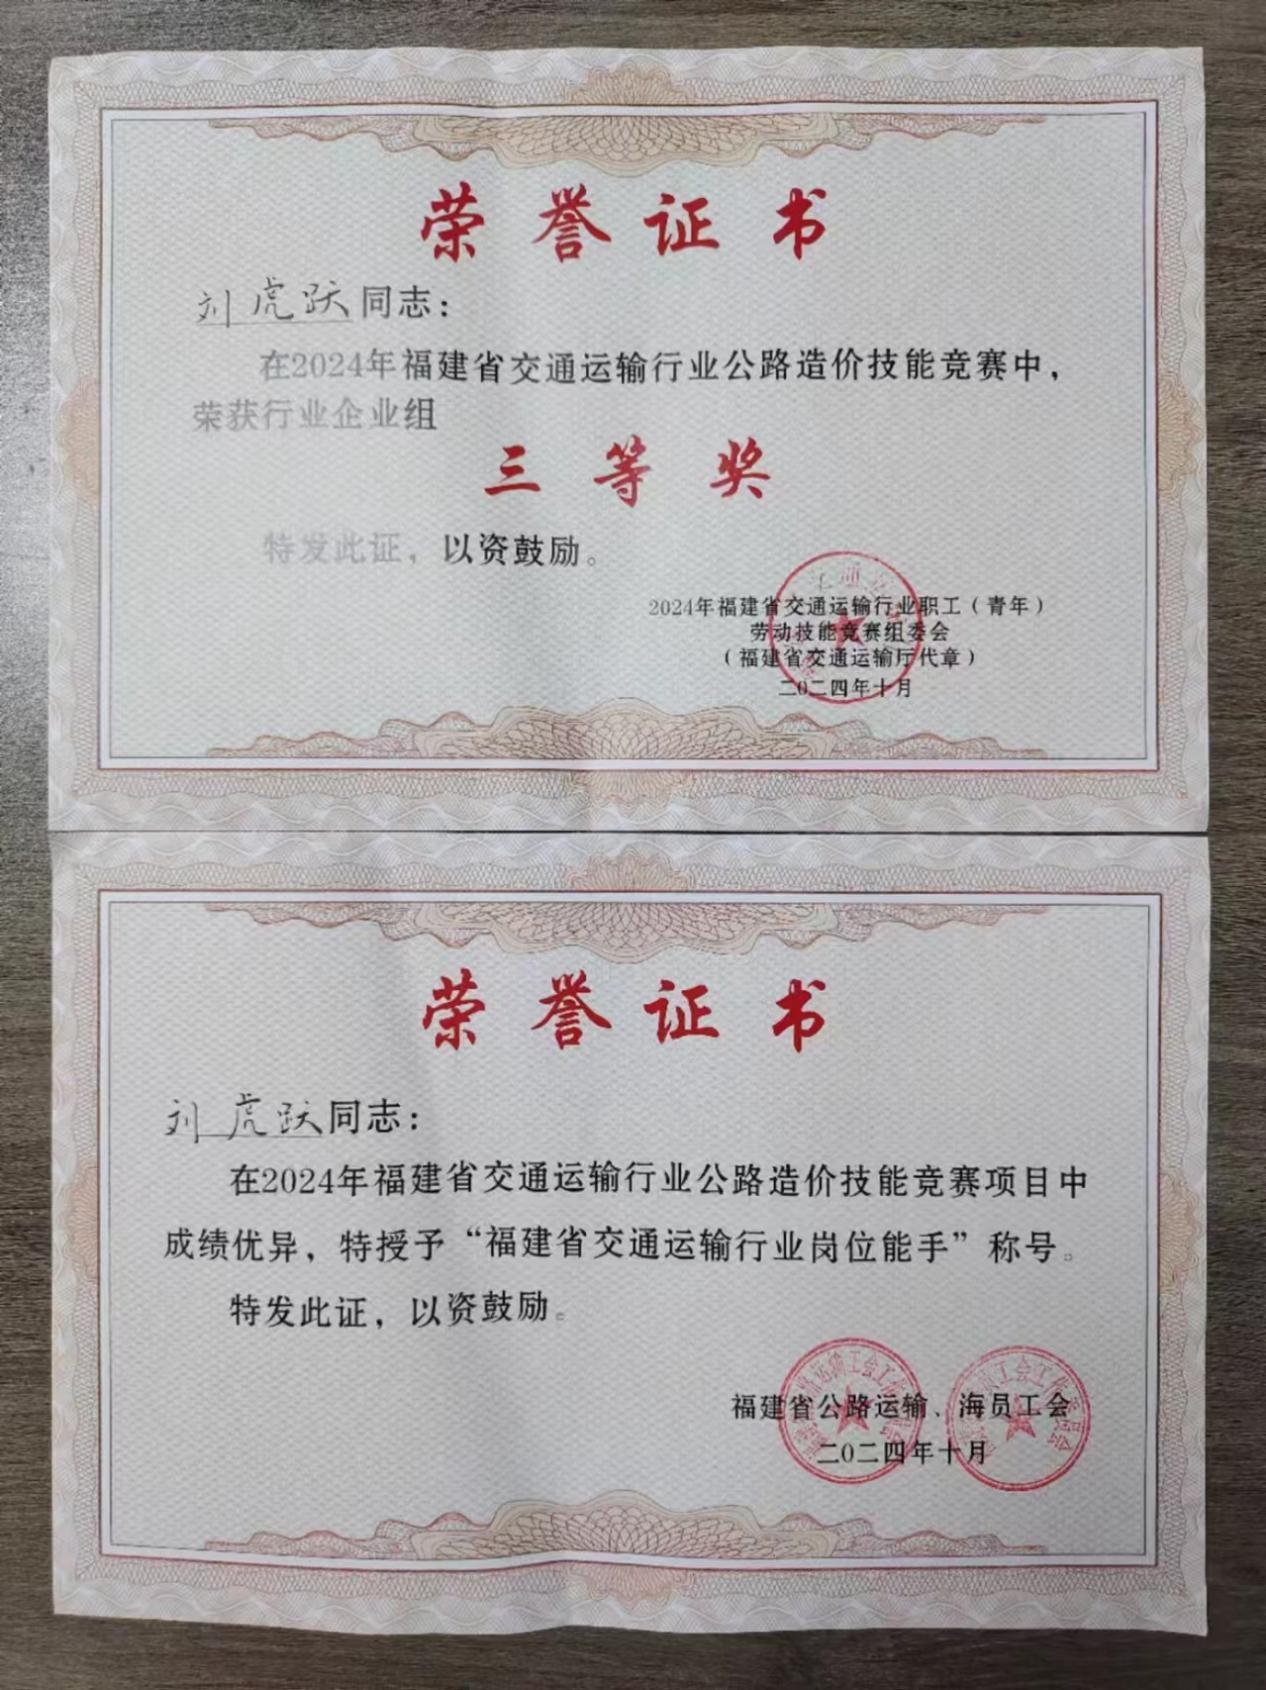 荣誉证书
刘虎跃同志：
在2024年福建省交通运输行业公路造价技能竞赛中，
荣获行业企业组
三等奖
特发此证，以资鼓励。
2024年福建省交通运输行业职工（青年）
劳动技能竞赛组委会
（福建省交通运输厅代章）
二〇二四年十月
荣誉证书
刘虎跃同志：
在2024年福建省交通运输行业公路造价技能竞赛项目中
成绩优异，特授予“福建省交通运输行业岗位能手”称号。
特发此证，以资鼓励。
福建省公路运输、海员工会
二〇二四年十月